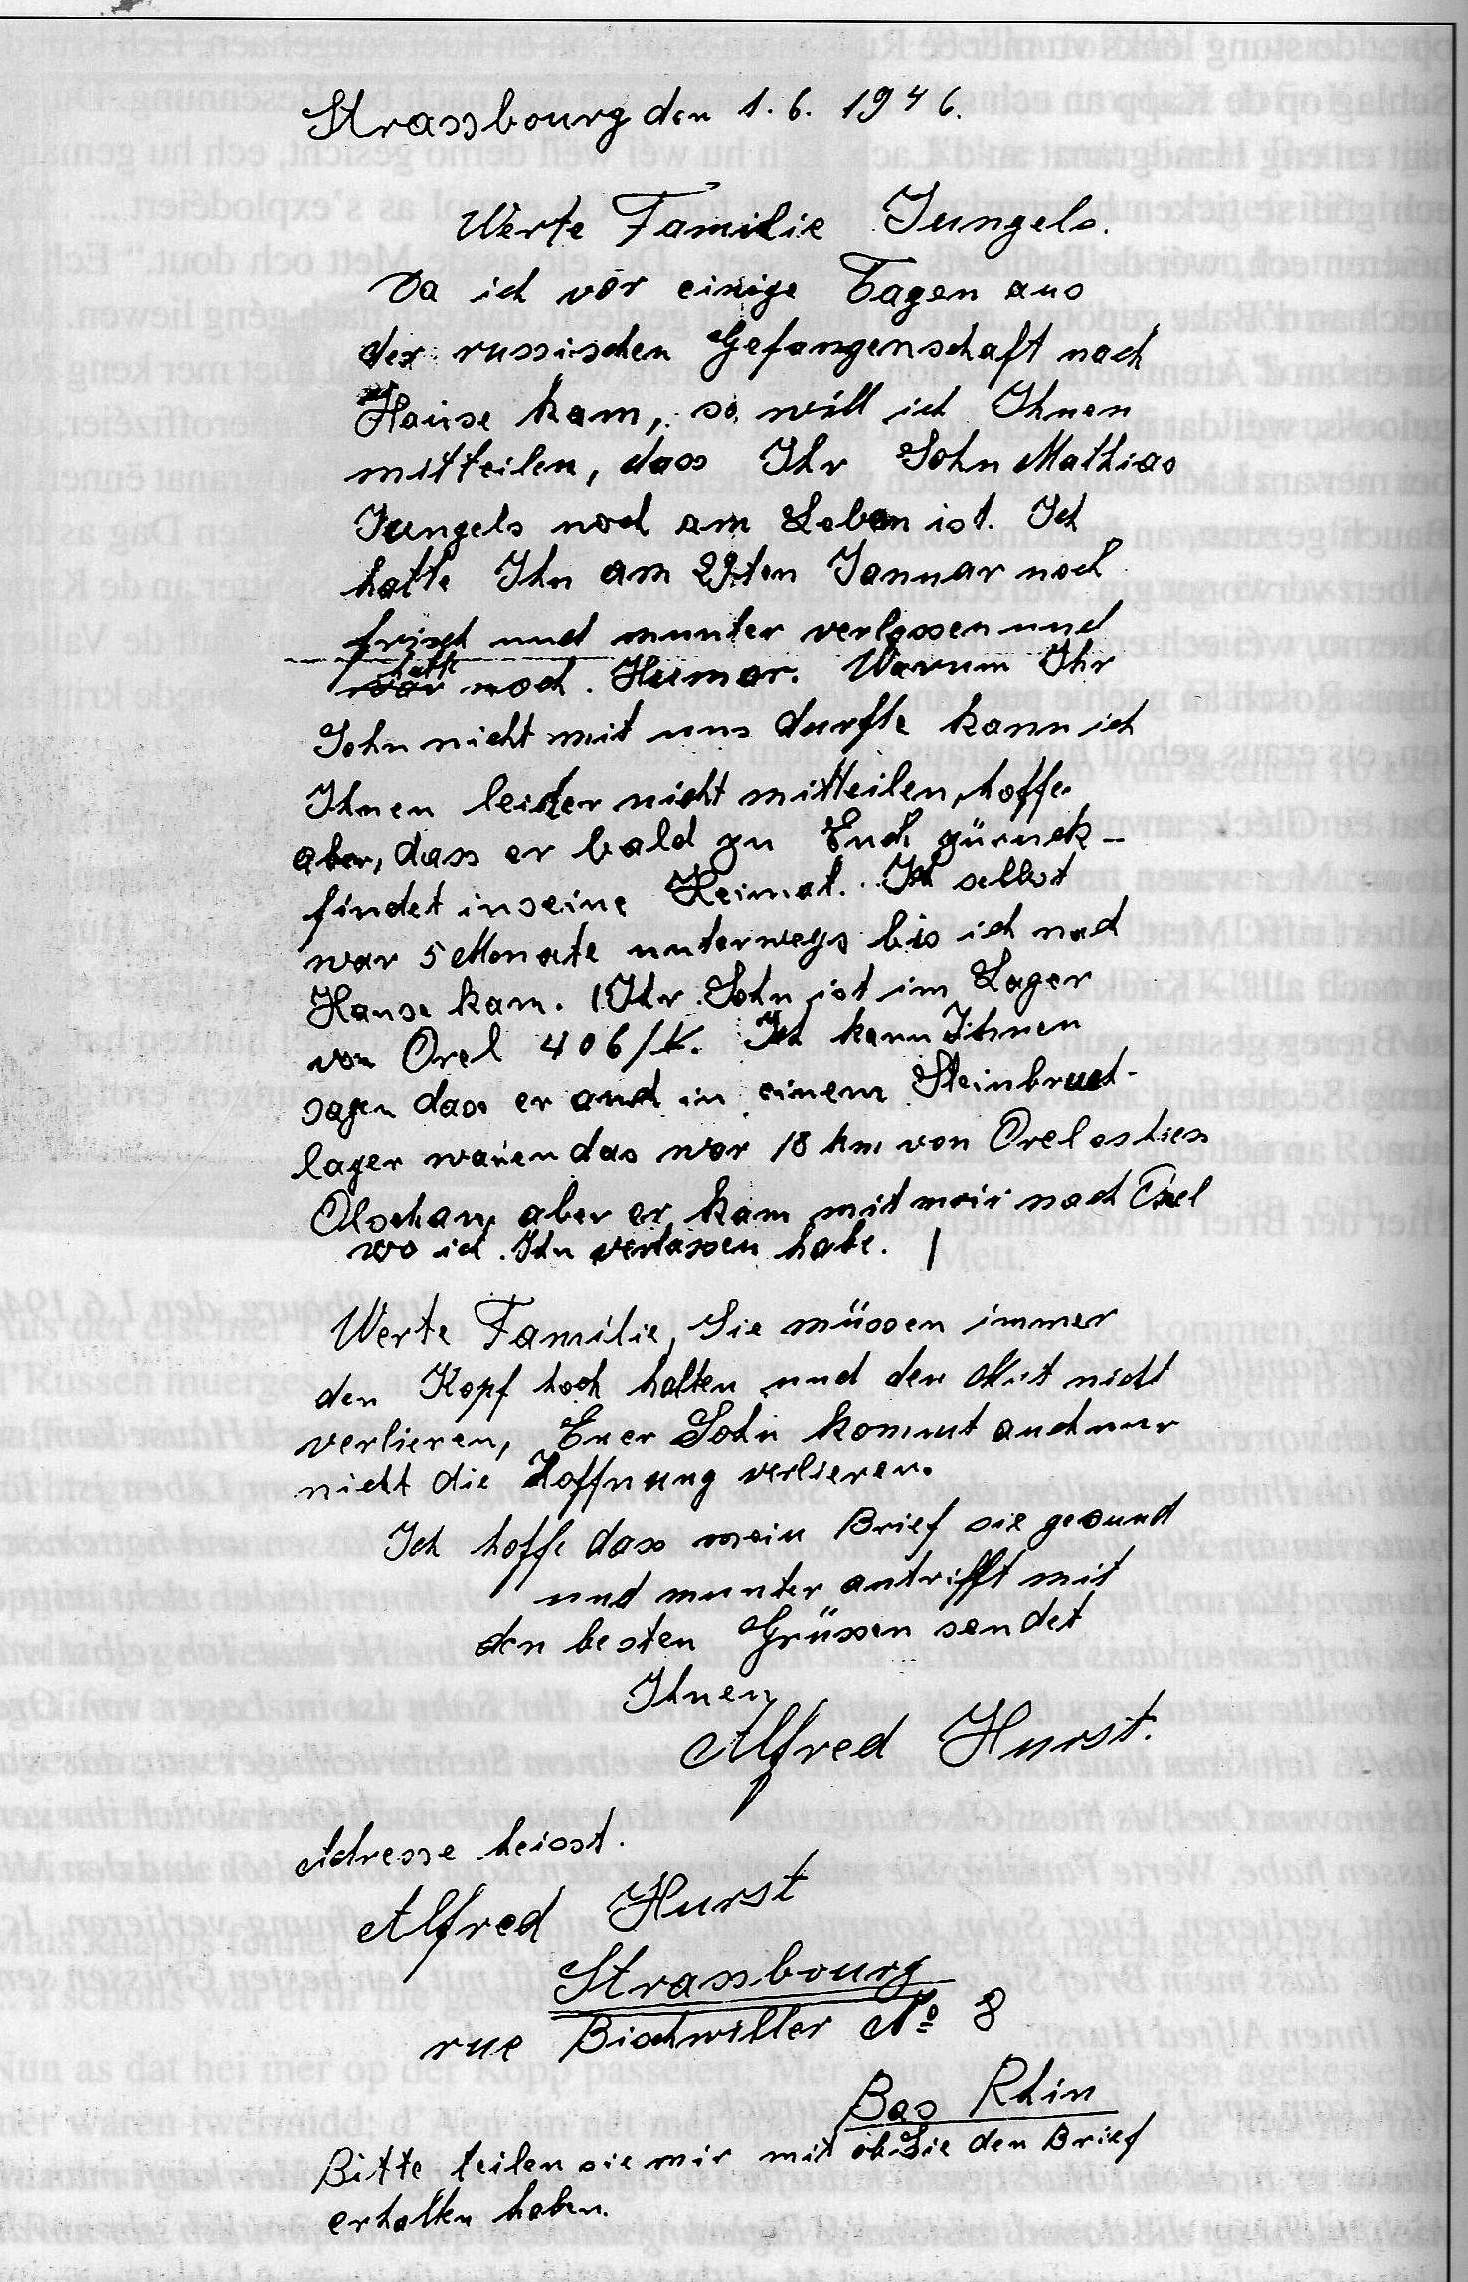 Strassbourg den 1. 6. 1946.
Werte Familie Jungels.
Da ich vor einige Tagen aus
der russischen Gefangenschaft nach
Hause kam, so will ich Ihnen
mitteilen, dass Ihr Sohn Mathias
Jungels noch am Leben ist. Ich
hatte Ihn am 29ten Januar noch
frisch und munter verlassen und
hatte
war noch Humor. Warum Ihr
Sohn nicht mit uns durfte kann ich
Ihnen leider nicht mitteilen, hoffe
aber, dass er bald zu Euch zürück-
findet in seine Heimat. Ich selbst
war 5 Monate unterwegs bis ich nach
Hause kam. Ihr Sohn ist im Lager
von Orel 406/K. Ich kann Ihnen
sagen dass er auch in einem Steinbruch-
lager waren das war 18 km von Orel es hies
aber er kam mit mir nach Orel
wo ich Ihn verlassen habe.
Werte Familie, Sie müssen immer
den Kopf hoch halten und den Mut nicht
verlieren, Euer Sohn kommt auch nur
nicht die Hoffnung verlieren.
Ich hoffe dass mein Brief sie gesund
und munter antrifft mit
den besten Grüssen sendet
Ihnen
Alfred Hurst.
Adresse heisst.
Alfred Hurst
Strassbourg
rue Bischwiller Nº 8
Bas Rhin
Bitte teilen sie mir mit ob Sie den Brief
erhalten haben.